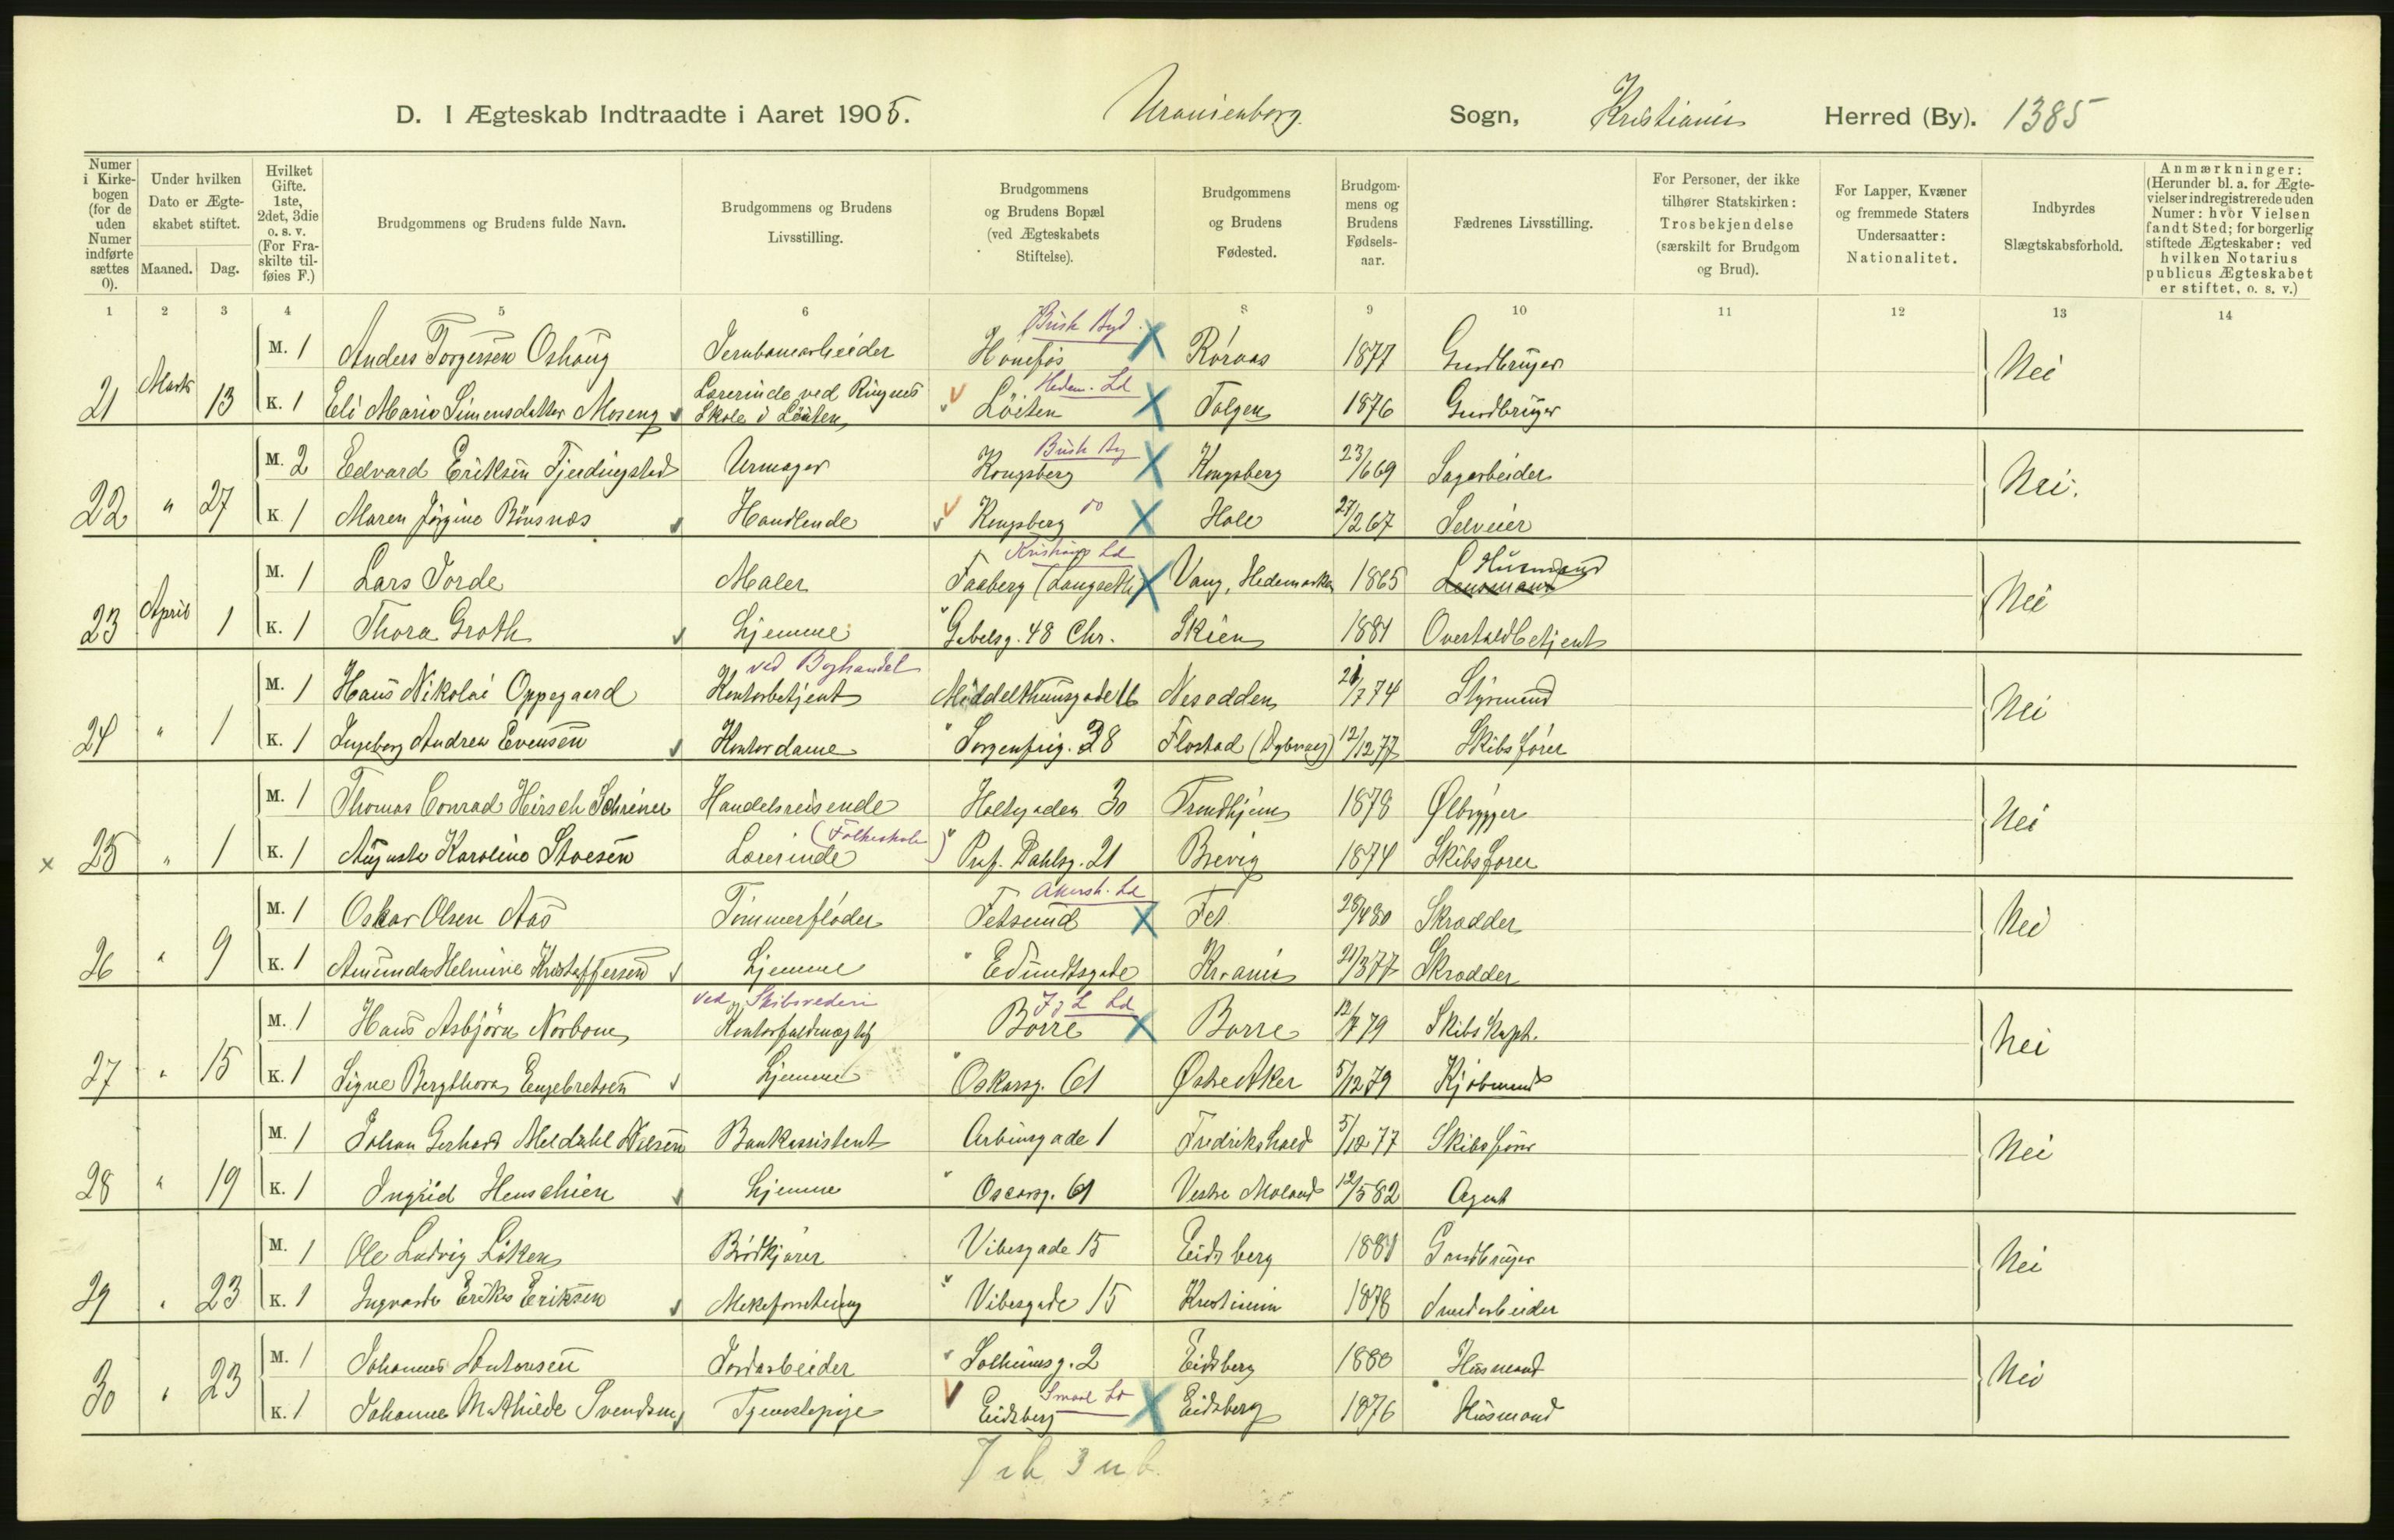 D. I Ægteskab Indtraadte i Aaret 1905. Uranienborg Sogn, Kristiania Herred (By). 1385
Numer i Kirkebogen (for de uden Numer indførte sættes 0).
Under hvilken Dato er Ægteskabet stiftet.
Maaned. Dag.
Hvilket Gifte. 1ste, 2det, 3die o. s. v. (For Fraskilte tilføies F.)
Brudgommens og Brudens fulde Navn.
Brudgommens og Brudens Livsstilling.
Brudgommens og Brudens Bopæl (ved Ægteskabets Stiftelse).
Brudgommens og Brudens Fødested.
Brudgommens og Brudens Fødselsaar.
Fædrenes Livsstilling.
For Personer, der ikke tilhører Statskirken: Trosbekjendelse (særskilt for Brudgom og Brud).
For Lapper, Kvæner og fremmede Staters Undersaatter: Nationalitet.
Indbyrdes Slægtskabsforhold.
Anmærkninger: (Herunder bl. a. for Ægtevielser indregistrerede uden Numer: hvor Vielsen fandt Sted; for borgerlig stiftede Ægteskaber: ved hvilken Notarius publicus Ægteskabet er stiftet, o. s. v.)
1 2 3 4 5 6 8 9 10 11 12 13 14
Busk Byd
M. 1 Anders Torgersen Oshaug Jernbanearbeider Hönefos Röraas 1877 Gardbruger
Hedem. Ld
21 Marts 13 K. 1 Eli Marie Simensdatter Moseng Lærerinde ved Ringnes Skole i Löiten Löiten Tolgen 1876 Gardbruger Nei
Busk By
M. 2 Edvard Eriksen Tjerdingstad Urmager Kongsberg Kongsberg 23/6 69 Sagarbeider
22 " 27 K 1 Maren Jörgine Bönsnæs Handlende Kongsberg do Hole 27/2 67 Selveier Nei.
Kristians Ld
M. 1 Lars Jorde Maler Faaberg (Langseth) Vang, Hedemarken 1865 Husmand
23 April 1 K. 1 Thora Groth Hjemme Gabelsg. 48 Chr. Skien 1881 Overtoldbetjent Nei
ved Boghandel
M. 1 Hans Nikolai Oppegaard Kontorbetjent Middelthunsgade 16 Nesodden 21/7 74 Styrmand
24 " 1 K. 1 Ingeborg Andrea Evensen Kontordame Sorgenfrig. 28 Flostad (Dybvaag) 12/12 77 Skibsförer Nei
M. 1 Thomas Conrad Hirsch Schreiner Handelsreisende Holtegaden 30 Trondhjem 1878 Ølbrygger
(Folkeskole)
x 25 " 1 K. 1 Augusta Karoline Stoesen Lærerinde Prof. Dahlsg. 21 Brevig 1874 Skibsförer Nei
Akersh. Ld
M. 1 Oskar Olsen Aas Tömmerflöder Fetsund Fet 28/4 80 Skrædder
26 " 9 K. 1 Amunda Helmine Kristoffersen Hjemme Edmundtsgade Kr.ania 21/3 77 Skrædder Nei
ved Skibsrederi J. & L Ld
M. 1 Hans Asbjörn Norbom Kontorfuldmægtig Borre Borre 12/7 79 Skibskapt.
27 " 15 K. 1 Signe Bergthora Engebretsen Hjemme Oskarsg. 61 Østre Aker 5/12 79 Kjöbmand Nei
M. 1 Johan Gerhard Meldahl Nielsen Bankassistent Arbinsgade 1 Fredrikshald 5/12 77 Skibsförer
28 " 19 K. 1 Ingrid Henschien Hjemme Oscarsg. 61 Vestre Moland 12/5 82 Agent Nei
M. 1 Ole Ludvig Löken Brödkjörer Vibesgade 15 Eidsberg 1881 Gardbruger
29 " 23 K. 1 Ingvarda Erika Eriksen Vibesgade 15 Kristiania 1878 Nei
M. 1 Johannes Antonsen Jordarbeider Solheimsg. 2 Eidsberg 1880 Husmand
Smaal Ld
30 " 23 K. 1 Johanne Mathilde Svendsen Tjenestepige Eidsberg Eidsberg 1876 Husmand Nei
7 3 u b.